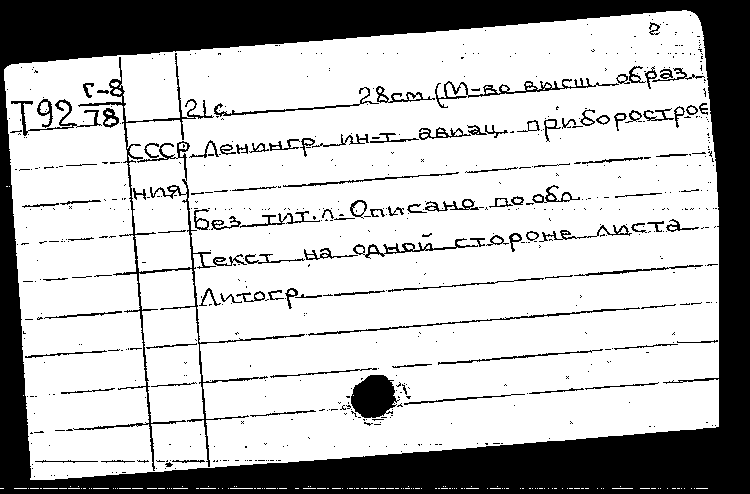 Т92 Г-8/78
21 с. 28 см. (М-во высш. образ.
СССР. Ленингр. ин-т авиац. приборострое
ния)
Без тит. л. Описано по обл.
Текст на одной стороне листа
Литогр.